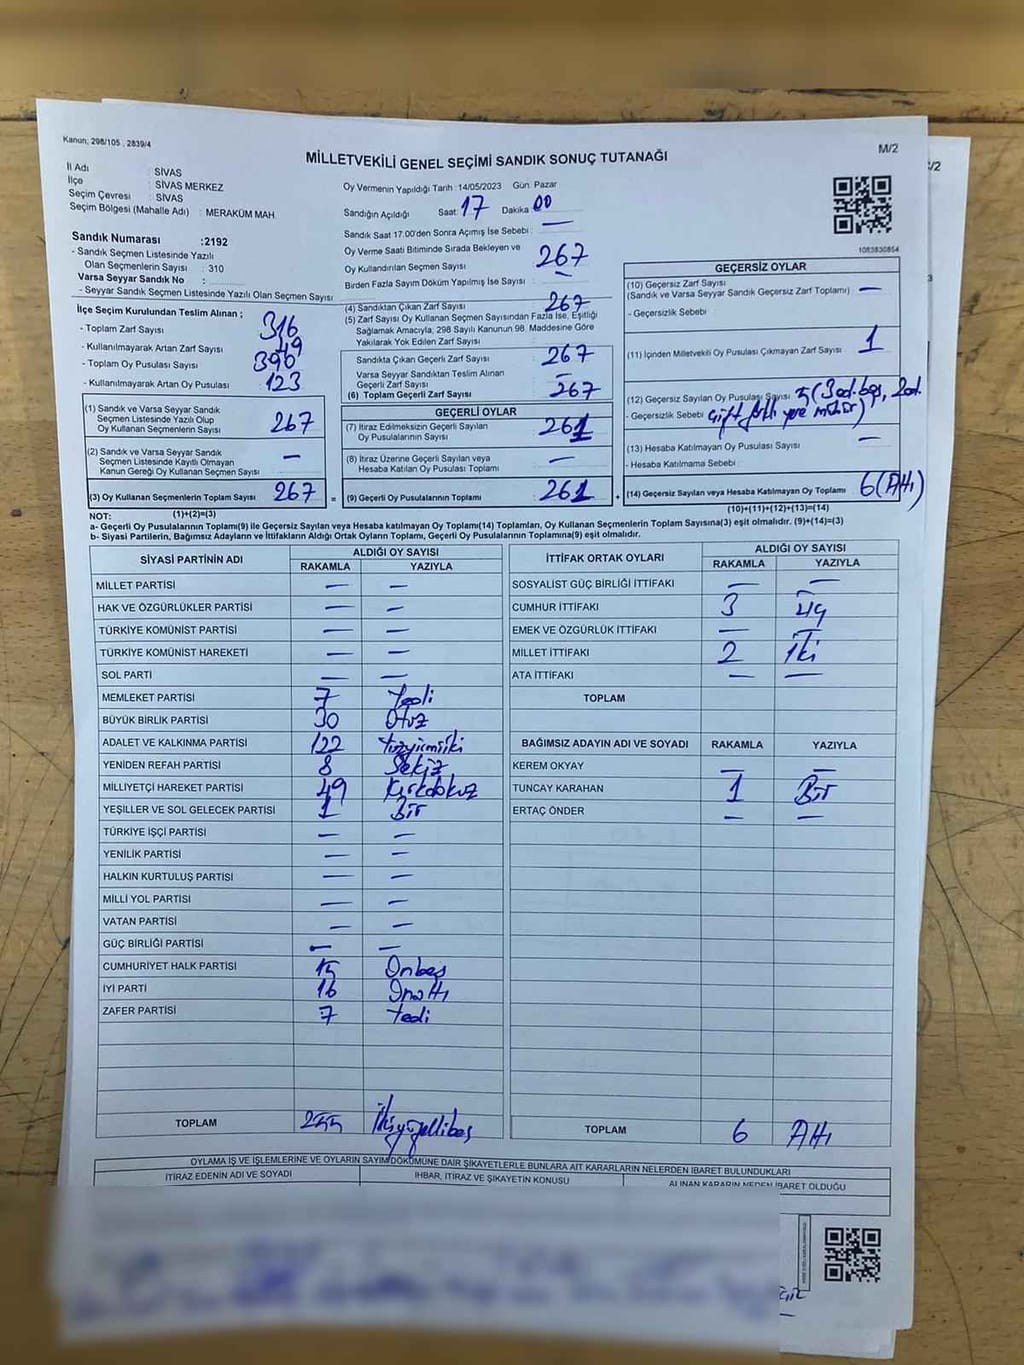 Kanun; 298/105 , 2839/4
M/2
MİLLETVEKİLİ GENEL SEÇİMİ SANDIK SONUÇ TUTANAĞI
İl Adı : SİVAS
İlçe : SİVAS MERKEZ
Seçim Çevresi : SİVAS
Seçim Bölgesi (Mahalle Adı) : MERAKÜM MAH.
Sandık Numarası :2192
- Sandık Seçmen Listesinde Yazılı
Olan Seçmenlerin Sayısı : 310
Varsa Seyyar Sandık No :
- Seyyar Sandık Seçmen Listesinde Yazılı Olan Seçmen Sayısı :
Oy Vermenin Yapıldığı Tarih :14/05/2023 Gün: Pazar
Sandığın Açıldığı Saat: 17 Dakika: 00
Sandık Saat 17.00'den Sonra Açımış İse Sebebi : —
Oy Verme Saati Bitiminde Sırada Bekleyen ve
Oy Kullandırılan Seçmen Sayısı 267
Birden Fazla Sayım Döküm Yapılmış İse Sayısı : —
1083830854
İlçe Seçim Kurulundan Teslim Alınan ;
- Toplam Zarf Sayısı : 316
- Kullanılmayarak Artan Zarf Sayısı : 49
- Toplam Oy Pusulası Sayısı : 390
- Kullanılmayarak Artan Oy Pusulası : 123
(1) Sandık ve Varsa Seyyar Sandık
Seçmen Listesinde Yazılı Olup
Oy Kullanan Seçmenlerin Sayısı 267
(2) Sandık ve Varsa Seyyar Sandık
Seçmen Listesinde Kayıtlı Olmayan
Kanun Gereği Oy Kullanan Seçmen Sayısı —
(3) Oy Kullanan Seçmenlerin Toplam Sayısı 267
(1)+(2)=(3)
(4) Sandıktan Çıkan Zarf Sayısı : 267
(5) Zarf Sayısı Oy Kullanan Seçmen Sayısından Fazla İse, Eşitliği
Sağlamak Amacıyla; 298 Sayılı Kanunun 98. Maddesine Göre
Yakılarak Yok Edilen Zarf Sayısı :
Sandıkta Çıkan Geçerli Zarf Sayısı 267
Varsa Seyyar Sandıktan Teslim Alınan
Geçerli Zarf Sayısı : —
(6) Toplam Geçerli Zarf Sayısı : 267
GEÇERLİ OYLAR
(7) İtiraz Edilmeksizin Geçerli Sayılan
Oy Pusulalarının Sayısı : 261
(8) İtiraz Üzerine Geçerli Sayılan veya
Hesaba Katılan Oy Pusulası Toplamı : —
= (9) Geçerli Oy Pusulalarının Toplamı : 261 +
GEÇERSİZ OYLAR
(10) Geçersiz Zarf Sayısı
(Sandık ve Varsa Seyyar Sandık Geçersiz Zarf Toplamı) —
- Geçersizlik Sebebi :
(11) İçinden Milletvekili Oy Pusulası Çıkmayan Zarf Sayısı : 1
(12) Geçersiz Sayılan Oy Pusulası Sayısı : 5 (3 ad. boş, 2 ad.
- Geçersizlik Sebebi : Çift farklı yere mühür)
(13) Hesaba Katılmayan Oy Pusulası Sayısı : —
- Hesaba Katılmama Sebebi :
(14) Geçersiz Sayılan veya Hesaba Katılmayan Oy Toplamı 6 (Altı)
(10)+(11)+(12)+(13)=(14)
NOT:
a- Geçerli Oy Pusulalarının Toplamı(9) ile Geçersiz Sayılan veya Hesaba katılmayan Oy Toplamı(14) Toplamları, Oy Kullanan Seçmenlerin Toplam Sayısına(3) eşit olmalıdır. (9)+(14)=(3)
b- Siyasi Partilerin, Bağımsız Adayların ve İttifakların Aldığı Ortak Oyların Toplamı, Geçerli Oy Pusulalarının Toplamına(9) eşit olmalıdır.
SİYASİ PARTİNİN ADI ALDIĞI OY SAYISI
RAKAMLA YAZIYLA
MİLLET PARTİSİ — —
HAK VE ÖZGÜRLÜKLER PARTİSİ — —
TÜRKİYE KOMÜNİST PARTİSİ — —
TÜRKİYE KOMÜNİST HAREKETİ — —
SOL PARTİ — —
MEMLEKET PARTİSİ 7 Yedi
BÜYÜK BİRLİK PARTİSİ 30 Otuz
ADALET VE KALKINMA PARTİSİ 122 Yüzyirmiiki
YENİDEN REFAH PARTİSİ 8 Sekiz
MİLLİYETÇİ HAREKET PARTİSİ 49 Kırkdokuz
YEŞİLLER VE SOL GELECEK PARTİSİ 1 Bir
TÜRKİYE İŞÇİ PARTİSİ — —
YENİLİK PARTİSİ — —
HALKIN KURTULUŞ PARTİSİ — —
MİLLİ YOL PARTİSİ — —
VATAN PARTİSİ — —
GÜÇ BİRLİĞİ PARTİSİ — —
CUMHURİYET HALK PARTİSİ 15 Onbeş
İYİ PARTİ 16 Onaltı
ZAFER PARTİSİ 7 Yedi
TOPLAM 255 İkiyüzellibeş
İTTİFAK ORTAK OYLARI ALDIĞI OY SAYISI
RAKAMLA YAZIYLA
SOSYALİST GÜÇ BİRLİĞİ İTTİFAKI — —
CUMHUR İTTİFAKI 3 Üç
EMEK VE ÖZGÜRLÜK İTTİFAKI — —
MİLLET İTTİFAKI 2 İki
ATA İTTİFAKI — —
TOPLAM
BAĞIMSIZ ADAYIN ADI VE SOYADI RAKAMLA YAZIYLA
KEREM OKYAY — —
TUNCAY KARAHAN 1 Bir
ERTAÇ ÖNDER — —
TOPLAM 6 Altı
OYLAMA İŞ VE İŞLEMLERİNE VE OYLARIN SAYIM DÖKÜMÜNE DAİR ŞİKAYETLERLE BUNLARA AİT KARARLARIN NELERDEN İBARET BULUNDUKLARI
İTİRAZ EDENİN ADI VE SOYADI İHBAR, İTİRAZ VE ŞİKAYETİN KONUSU ALINAN KARARIN NEDEN İBARET OLDUĞU